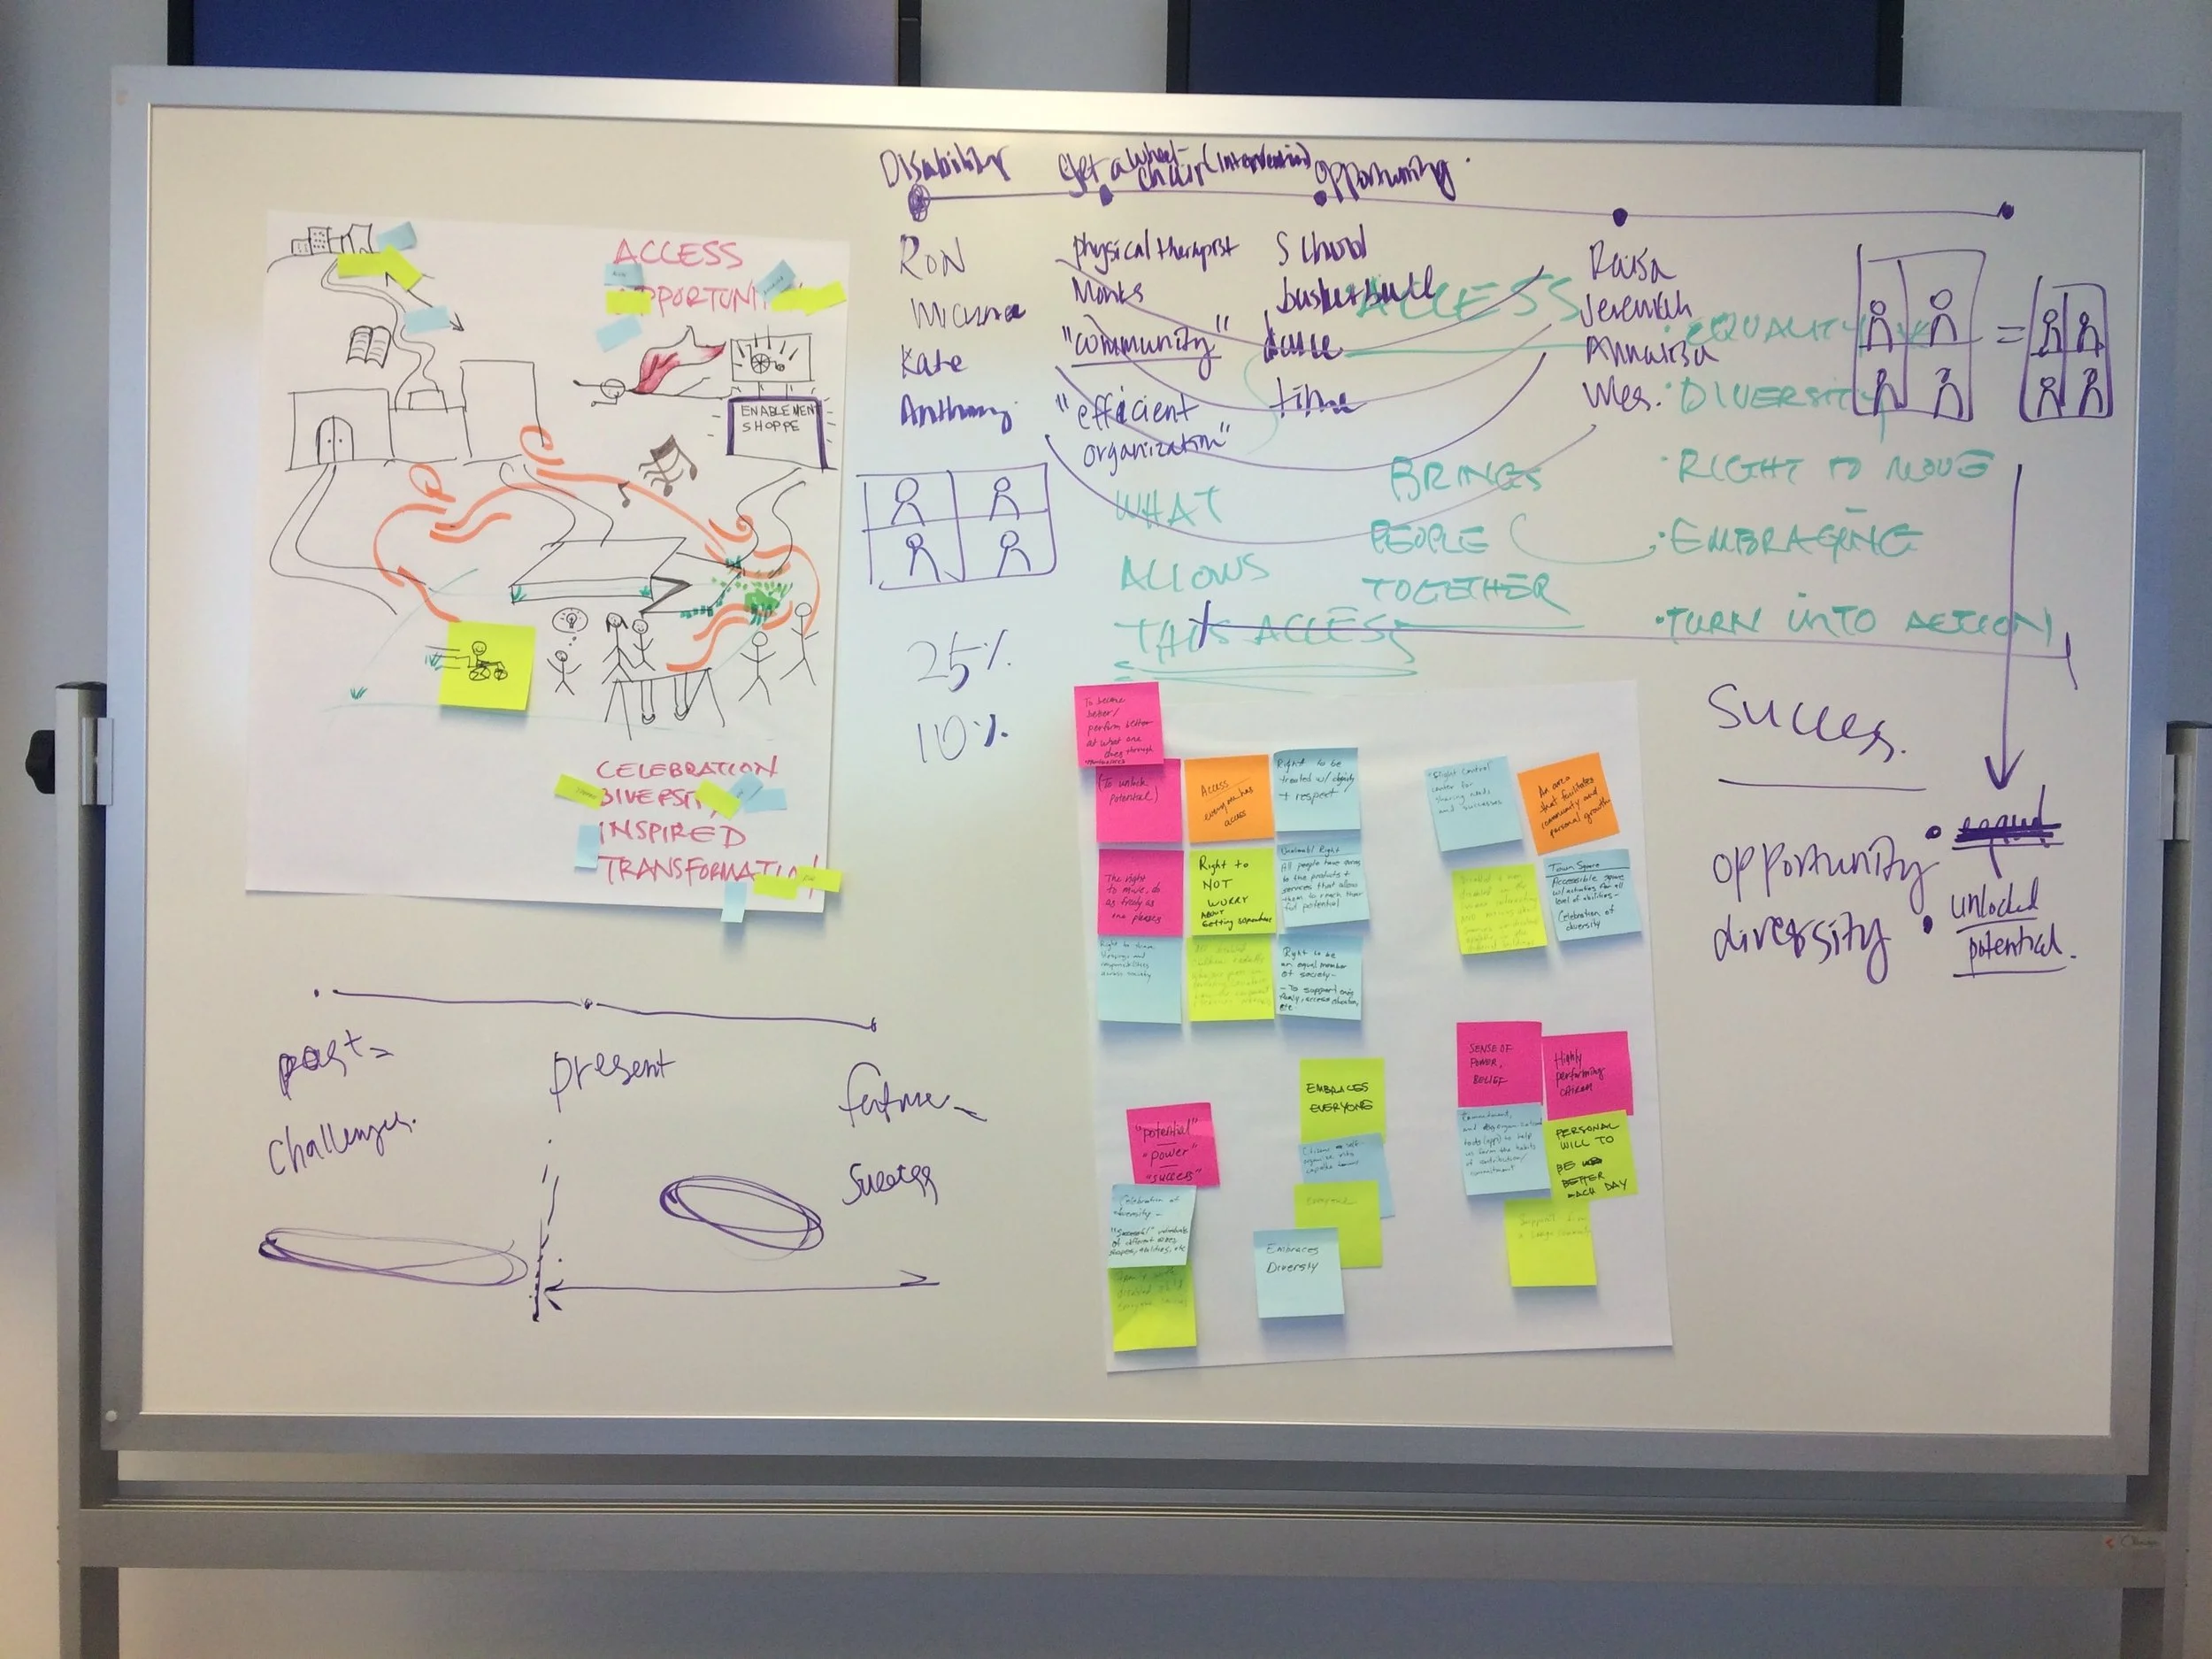 Disability
Get a wheel-
chair (Intervention)
opportunity.
ACCESS
OPPORTUNI
ENABLEMENT
SHOPPE
CELEBRATION
DIVERSI
INSPIRED
TRANSFORMATI
RON
Kate
Anthony
physical therapist
Monks
"community"
"efficient
organization"
School
basketball
dance
time
Raisa
Jeremiah
Annaliza
Wes.
=
ACCESS
EQUALITY
• DIVERSITY
• RIGHT TO MOVE
• EMBRACING
• TURN INTO ACTION
WHAT
ALLOWS
THIS ACCESS
BRINGS
PEOPLE
TOGETHER
25%
10%
Success.
opportunity •
diversity •
unlocked
potential.
past -
challenges.
present
future -
Success
To become
better/
perform better
at what one
does through
(To unlock
potential)
Access
everyone has
access
Right to be
treated w/ dignity
+ respect
The right
to move, do
as freely as
one pleases
Right to
NOT
WORRY
ABOUT
Getting somewhere
All people have access
to the products +
services that allow
them to reach their
full potential
Right to be
an equal member
of society -
- To support one's
family, access education,
etc.
center for
sharing needs
and successes
An area
that facilitates
community and
personal growth
Town Square
Accessible square
w/ activities for all
level of abilities -
Celebration of
diversity
"potential"
"power"
"success"
Celebration of
diversity -
"Successful" individuals
of different sizes
shapes, abilities, etc
EMBRACES
EVERYONE
Embraces
Diversity
SENSE OF
POWER,
BELIEF
Highly
performing
PERSONAL
WILL TO
BE
BETTER
EACH DAY